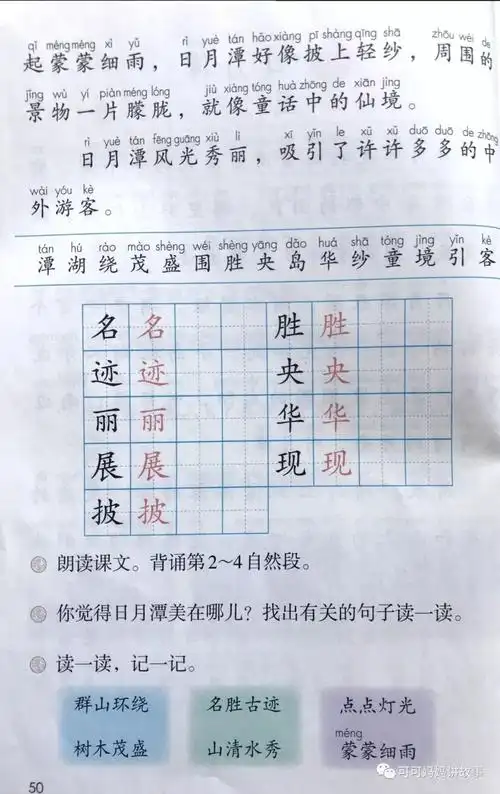 qǐ méngméng xì yǔ rì yuè tán hǎo xiàng pī shàng qīng shā zhōu wéi de
起蒙蒙细雨，日月潭好像披上轻纱，周围的
jǐng wù yí piàn méng lóng jiù xiàng tóng huà zhōng de xiān jìng
景物一片朦胧，就像童话中的仙境。
rì yuè tán fēng guāng xiù lì xī yǐn le xǔ xǔ duō duō de zhōng
日月潭风光秀丽，吸引了许许多多的中
wài yóu kè
外游客。
tán hú rào mào shèng wéi shèng yāng dǎo huá shā tóng jìng yǐn kè
潭湖绕茂盛围胜央岛华纱童境引客
名名 胜胜
迹迹 央央
丽丽 华华
展展 现现
披披
朗读课文。背诵第2～4自然段。
你觉得日月潭美在哪儿？找出有关的句子读一读。
读一读，记一记。
群山环绕 名胜古迹 点点灯光
méng
树木茂盛 山清水秀 蒙蒙细雨
50
可可妈妈讲故事